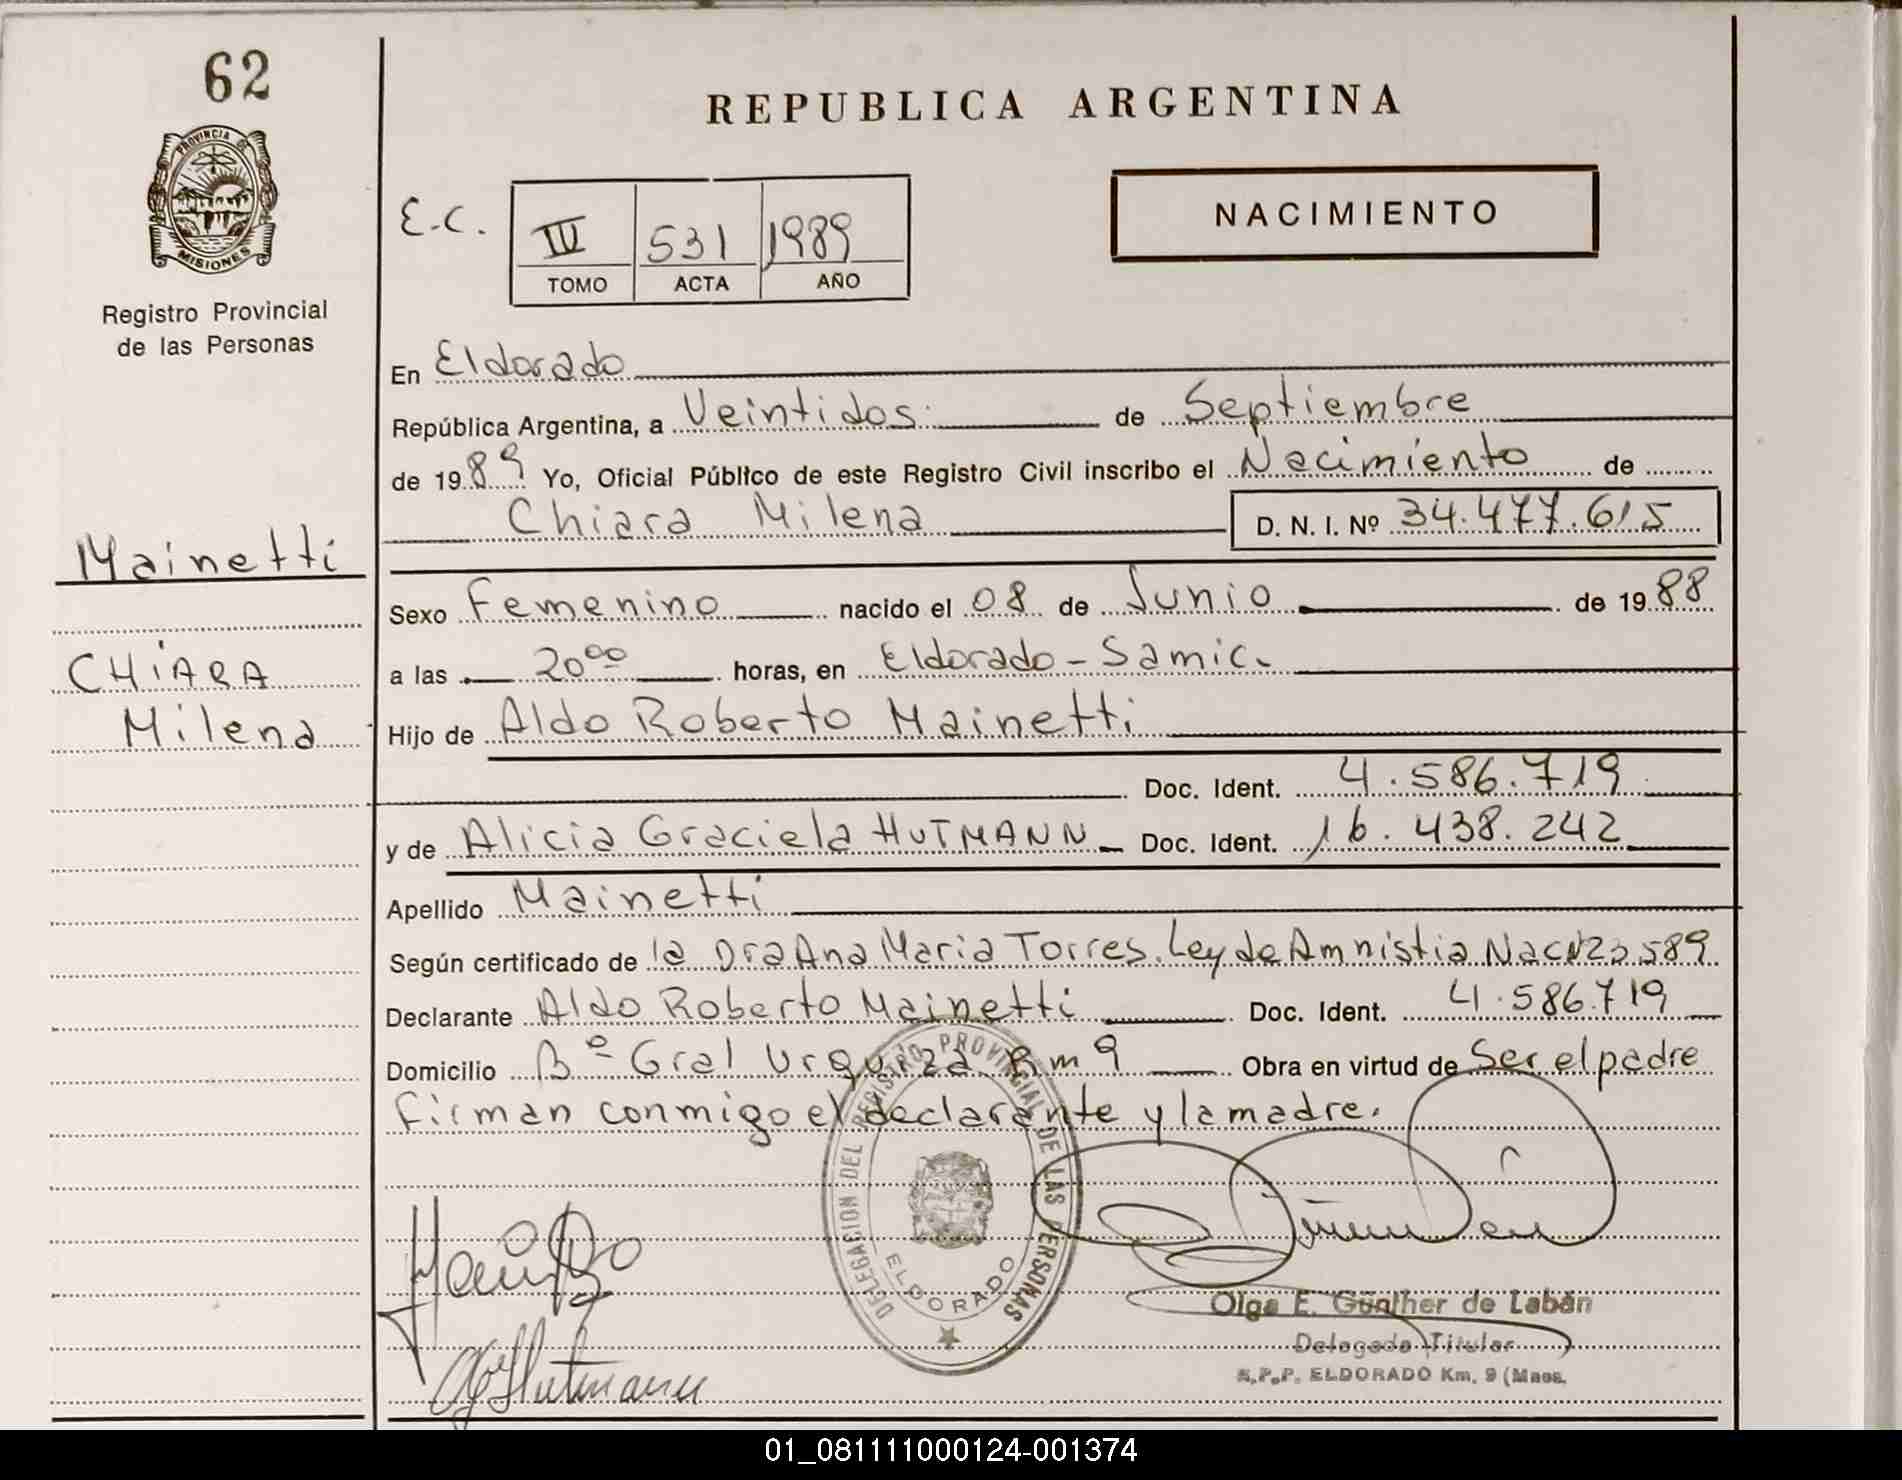 62
PROVINCIA DE
MISIONES
Registro Provincial
de las Personas
Mainetti
CHiARA
Milena
REPUBLICA ARGENTINA
NACIMIENTO
E.C.
III 531 1989
TOMO ACTA AÑO
En Eldorado
República Argentina, a Veintidos de Septiembre
de 1989 Yo, Oficial Público de este Registro Civil inscribo el Nacimiento de
Chiara Milena D. N. I. Nº 34.477.615
Sexo Femenino nacido el 08 de Junio de 1988
a las 20⁰⁰ horas, en Eldorado - Samic.
Hijo de Aldo Roberto Mainetti
Doc. Ident. 4.586.719
y de Alicia Graciela HUTMANN Doc. Ident. 16.438.242
Apellido Mainetti
Según certificado de la Dra Ana Maria Torres. Ley de Amnistia Nac N 23.589
Declarante Aldo Roberto Mainetti Doc. Ident. 4.586.719
Domicilio Bº Gral Urquiza Km 9 Obra en virtud de Ser el padre
firman conmigo el declarante y la madre.
DELEGACION DEL REGISTRO PROVINCIAL DE LAS PERSONAS
ELDORADO
Hutmann
Olga E. Günther de Labán
Delegada Titular
R.P.P. ELDORADO Km. 9 (Mnes.
01_081111000124-001374